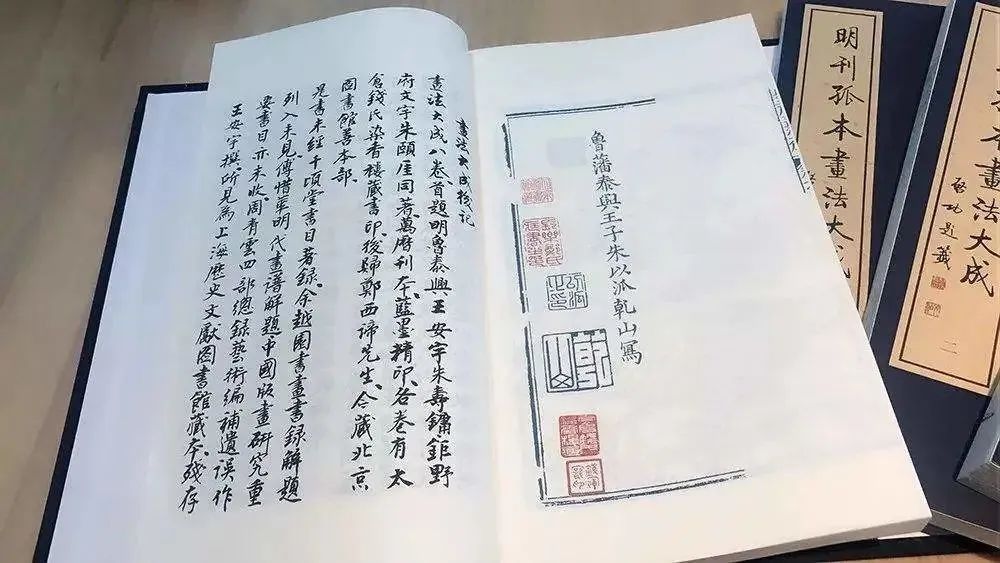 畫法大成校記
畫法大成八卷首題明魯泰興王安宇朱壽鏞鉅野
府文宇朱頤厓同著萬曆刊本藍墨精印各卷有太
倉錢氏染香樓藏書印後歸鄭西諦先生今藏北京
圖書館善本部
是書未經千頃堂書目著録余越園書畫書録解題
列入未見傅惜華明代畫譜解題中國版畫研究重
要書目亦未收周青雲四部總録藝術編補遺誤作
王安宇撰所見為上海歷史文獻圖書館藏本殘存
魯藩泰興王子朱以派乾山寫
乾山
明刊孤本畫法大成
本畫法大成
啓功題簽
二